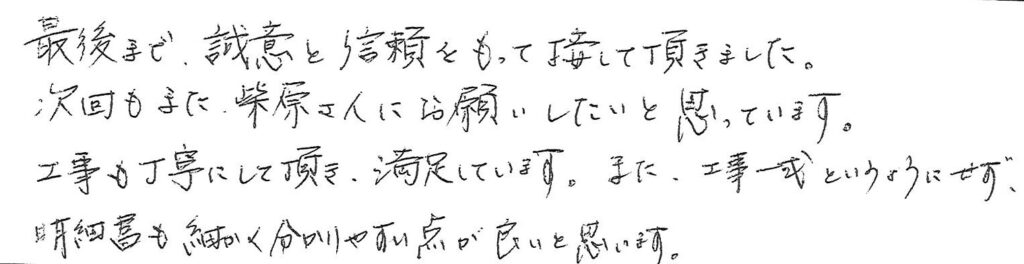 最後まで、誠意と信頼をもって接して頂きました。
次回もまた、柴原さんにお願いしたいと思っています。
工事も丁寧にして頂き、満足しています。また、工事一式というようにせず、
明細書も細かく分かりやすい点が良いと思います。